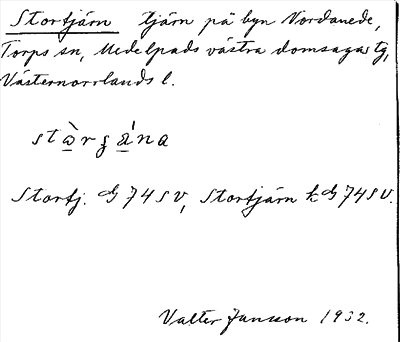 Stortjärn tjärn på byn Nordanede,
Torps sn, Medelpads västra domsagas tg,
Västernorrlands l.
Stortj. G 74 SV, Stortjärn k G 74 SV.
Valter Jansson 1932.